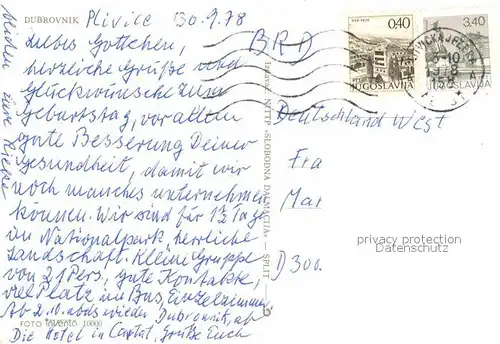 DUBROVNIK
Plivice 30.9.78
Liebes Gottchen,
herzliche Grüße und
Glückwünsche zum
Geburtstag, vor allem
gute Besserung Deiner
Gesundheit, damit wir
noch manches unternehmen
können. Wir sind für 13 Tage
im Nationalpark, herrliche
Landschaft. Kleine Gruppe
von 21 Pers, gute Kontakte,
viel Platz im Bus, Einzelzimmer
Ab 2.10. wieder Dubrovnik, ab
Die Hotel in Grüße Euch
FOTO 10000
NIŠP »SLOBODNA DALMACIJA« - SPLIT
BRD
0,40
JUGOSLAVIJA
3,40
JUGOSLAVIJA
Deutschland West
Fra
Mai
D300
privacy protection
Datenschutz